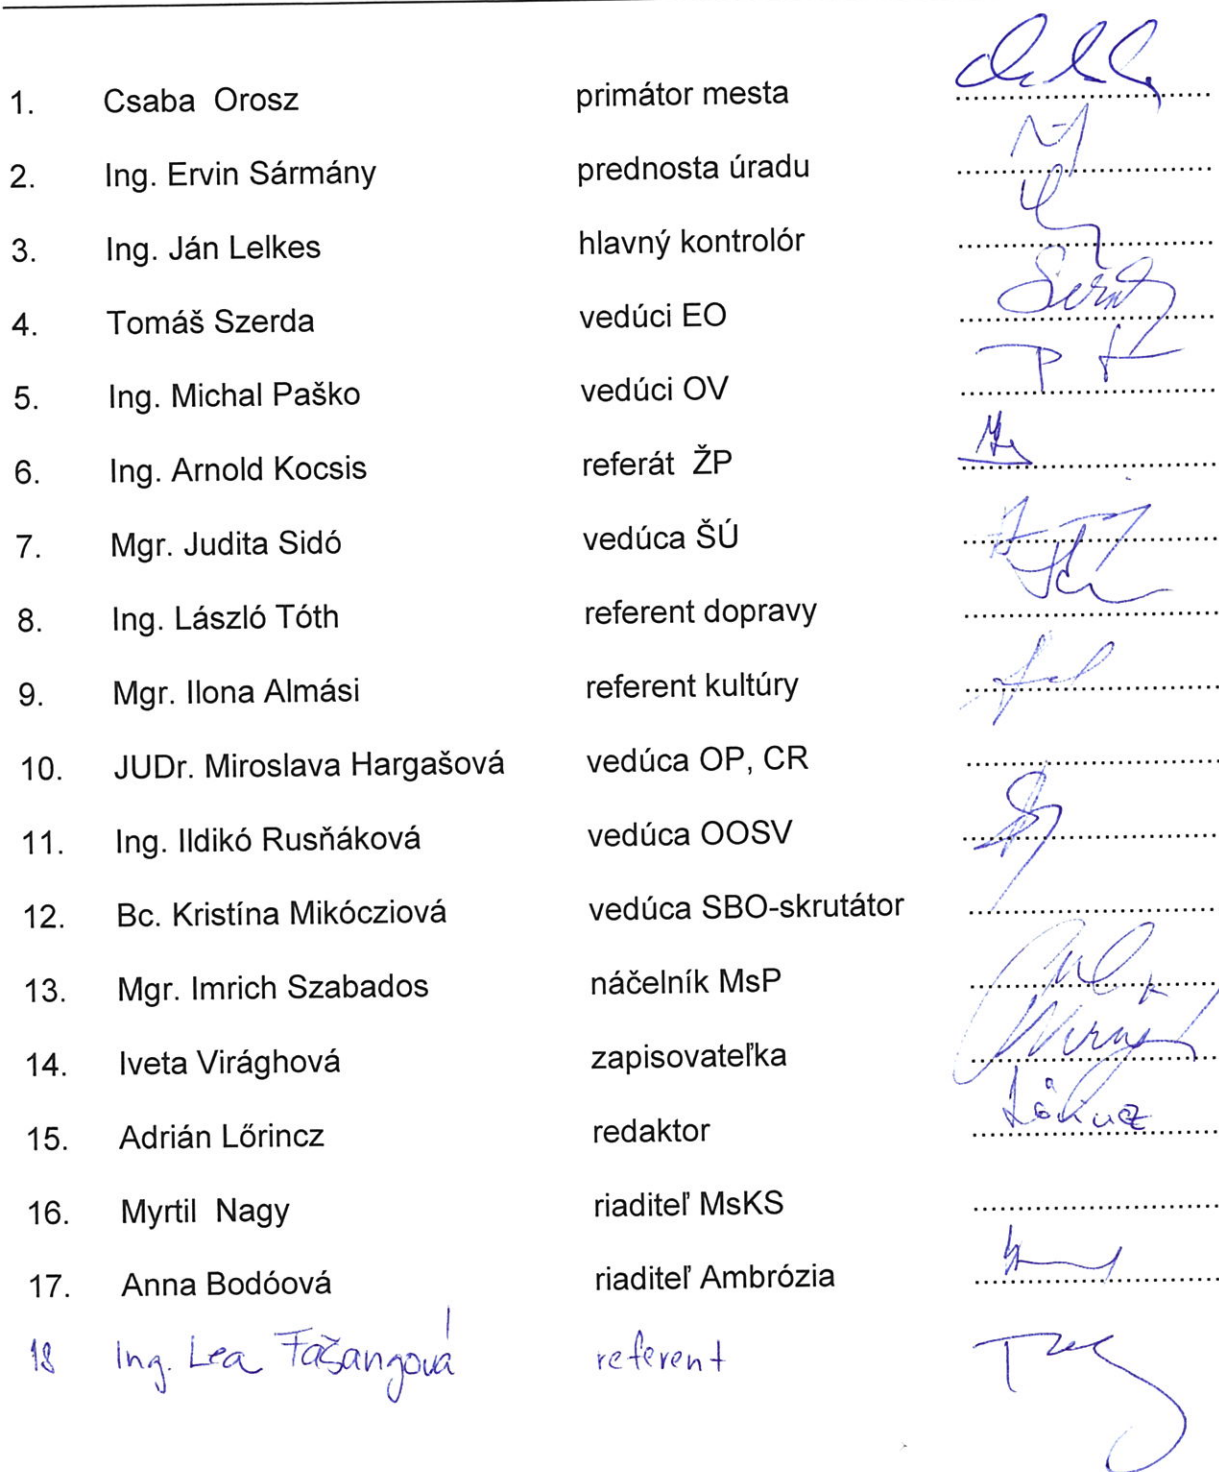 1. Csaba Orosz primátor mesta
2. Ing. Ervin Sármány prednosta úradu
3. Ing. Ján Lelkes hlavný kontrolór
4. Tomáš Szerda vedúci EO
5. Ing. Michal Paško vedúci OV
6. Ing. Arnold Kocsis referát ŽP
7. Mgr. Judita Sidó vedúca ŠÚ
8. Ing. László Tóth referent dopravy
9. Mgr. Ilona Almási referent kultúry
10. JUDr. Miroslava Hargašová vedúca OP, CR
11. Ing. Ildikó Rusňáková vedúca OOSV
12. Bc. Kristína Mikócziová vedúca SBO-skrutátor
13. Mgr. Imrich Szabados náčelník MsP
14. Iveta Virághová zapisovateľka
15. Adrián Lőrincz redaktor
16. Myrtil Nagy riaditeľ MsKS
17. Anna Bodóová riaditeľ Ambrózia
18 Ing. Lea Fašangová referent